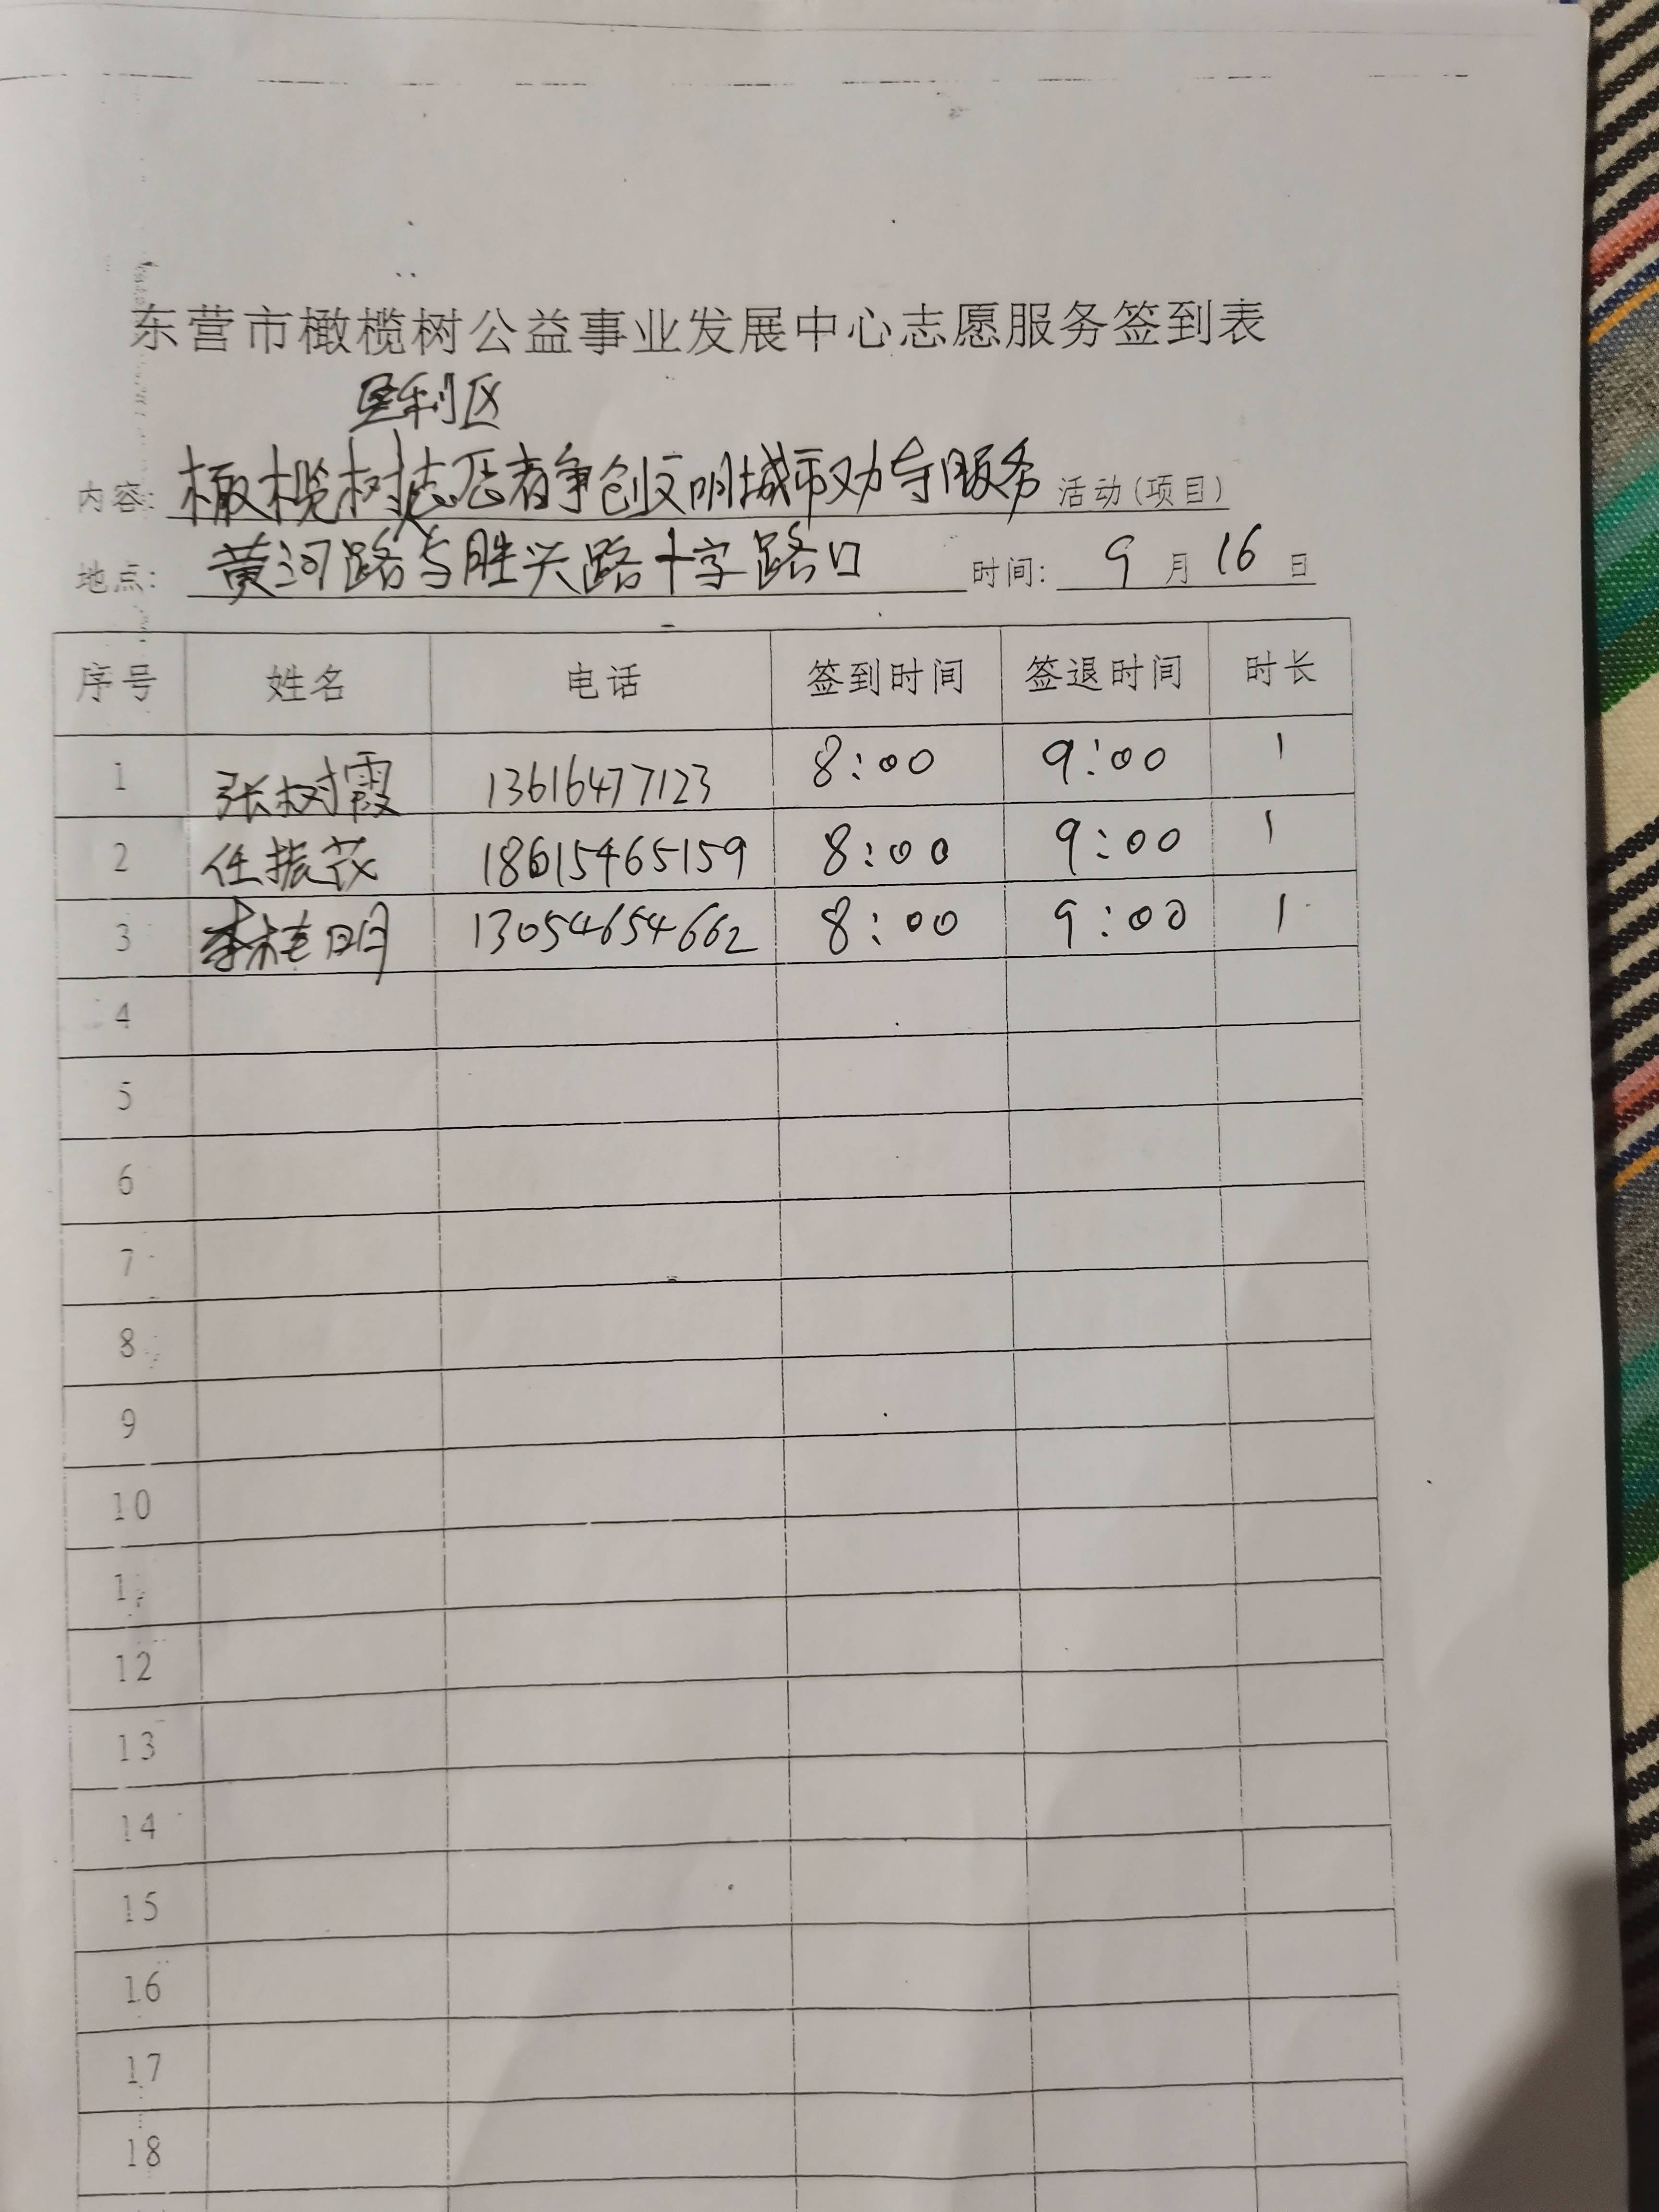 东营市橄榄树公益事业发展中心志愿服务签到表
垦利区
内容: 橄榄树志愿者争创文明城市劝导服务 活动(项目)
地点: 黄河路与胜兴路十字路口 时间: 9月16日
序号 姓名 电话 签到时间 签退时间 时长
1 张树霞 13616477123 8:00 9:00 1
2 任振茂 18615465159 8:00 9:00 1
3 李桂明 13054654662 8:00 9:00 1
4
5
6
7
8
9
10
12
13
14
15
16
17
18